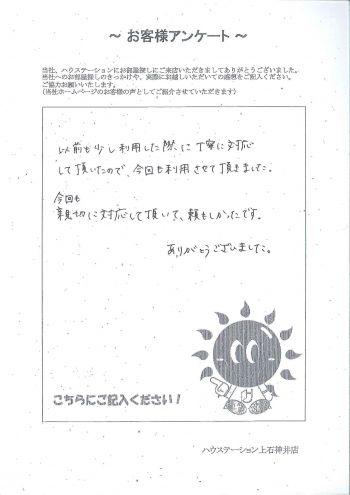 ～ お客様アンケート ～
当社、ハウステーションにお部屋探しにご来店いただきましてありがとうございました。
当社へのお部屋探しのきっかけや、実際にお越しいただいての感想をご記入ください。
ご協力お願いいたします。
(当社ホームページのお客様の声としてご紹介させていただきます)
以前も少し利用した際に丁寧に対応
して頂いたので、今回も利用させて頂きました。
今回も
親切に対応して頂いて、頼もしかったです。
ありがとうございました。
こちらにご記入ください！
ハウステーション上石神井店